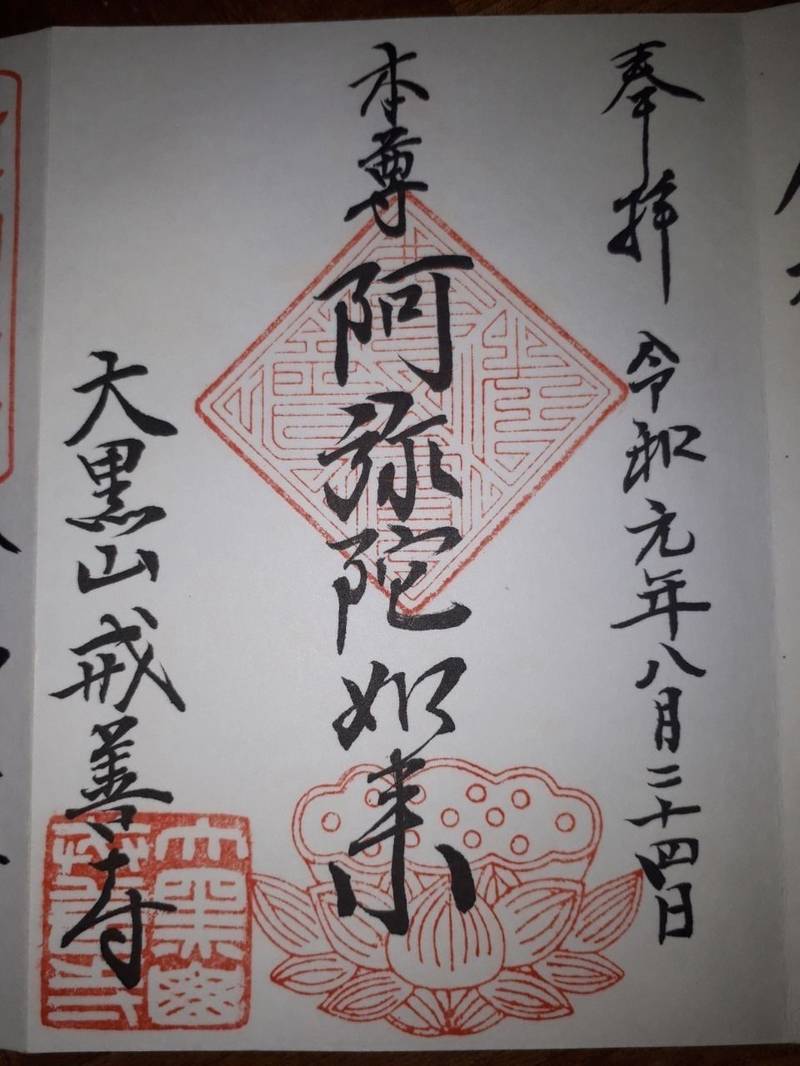 奉拝 令和元年八月二十四日
本尊 阿弥陀如来
大黒山戒善寺